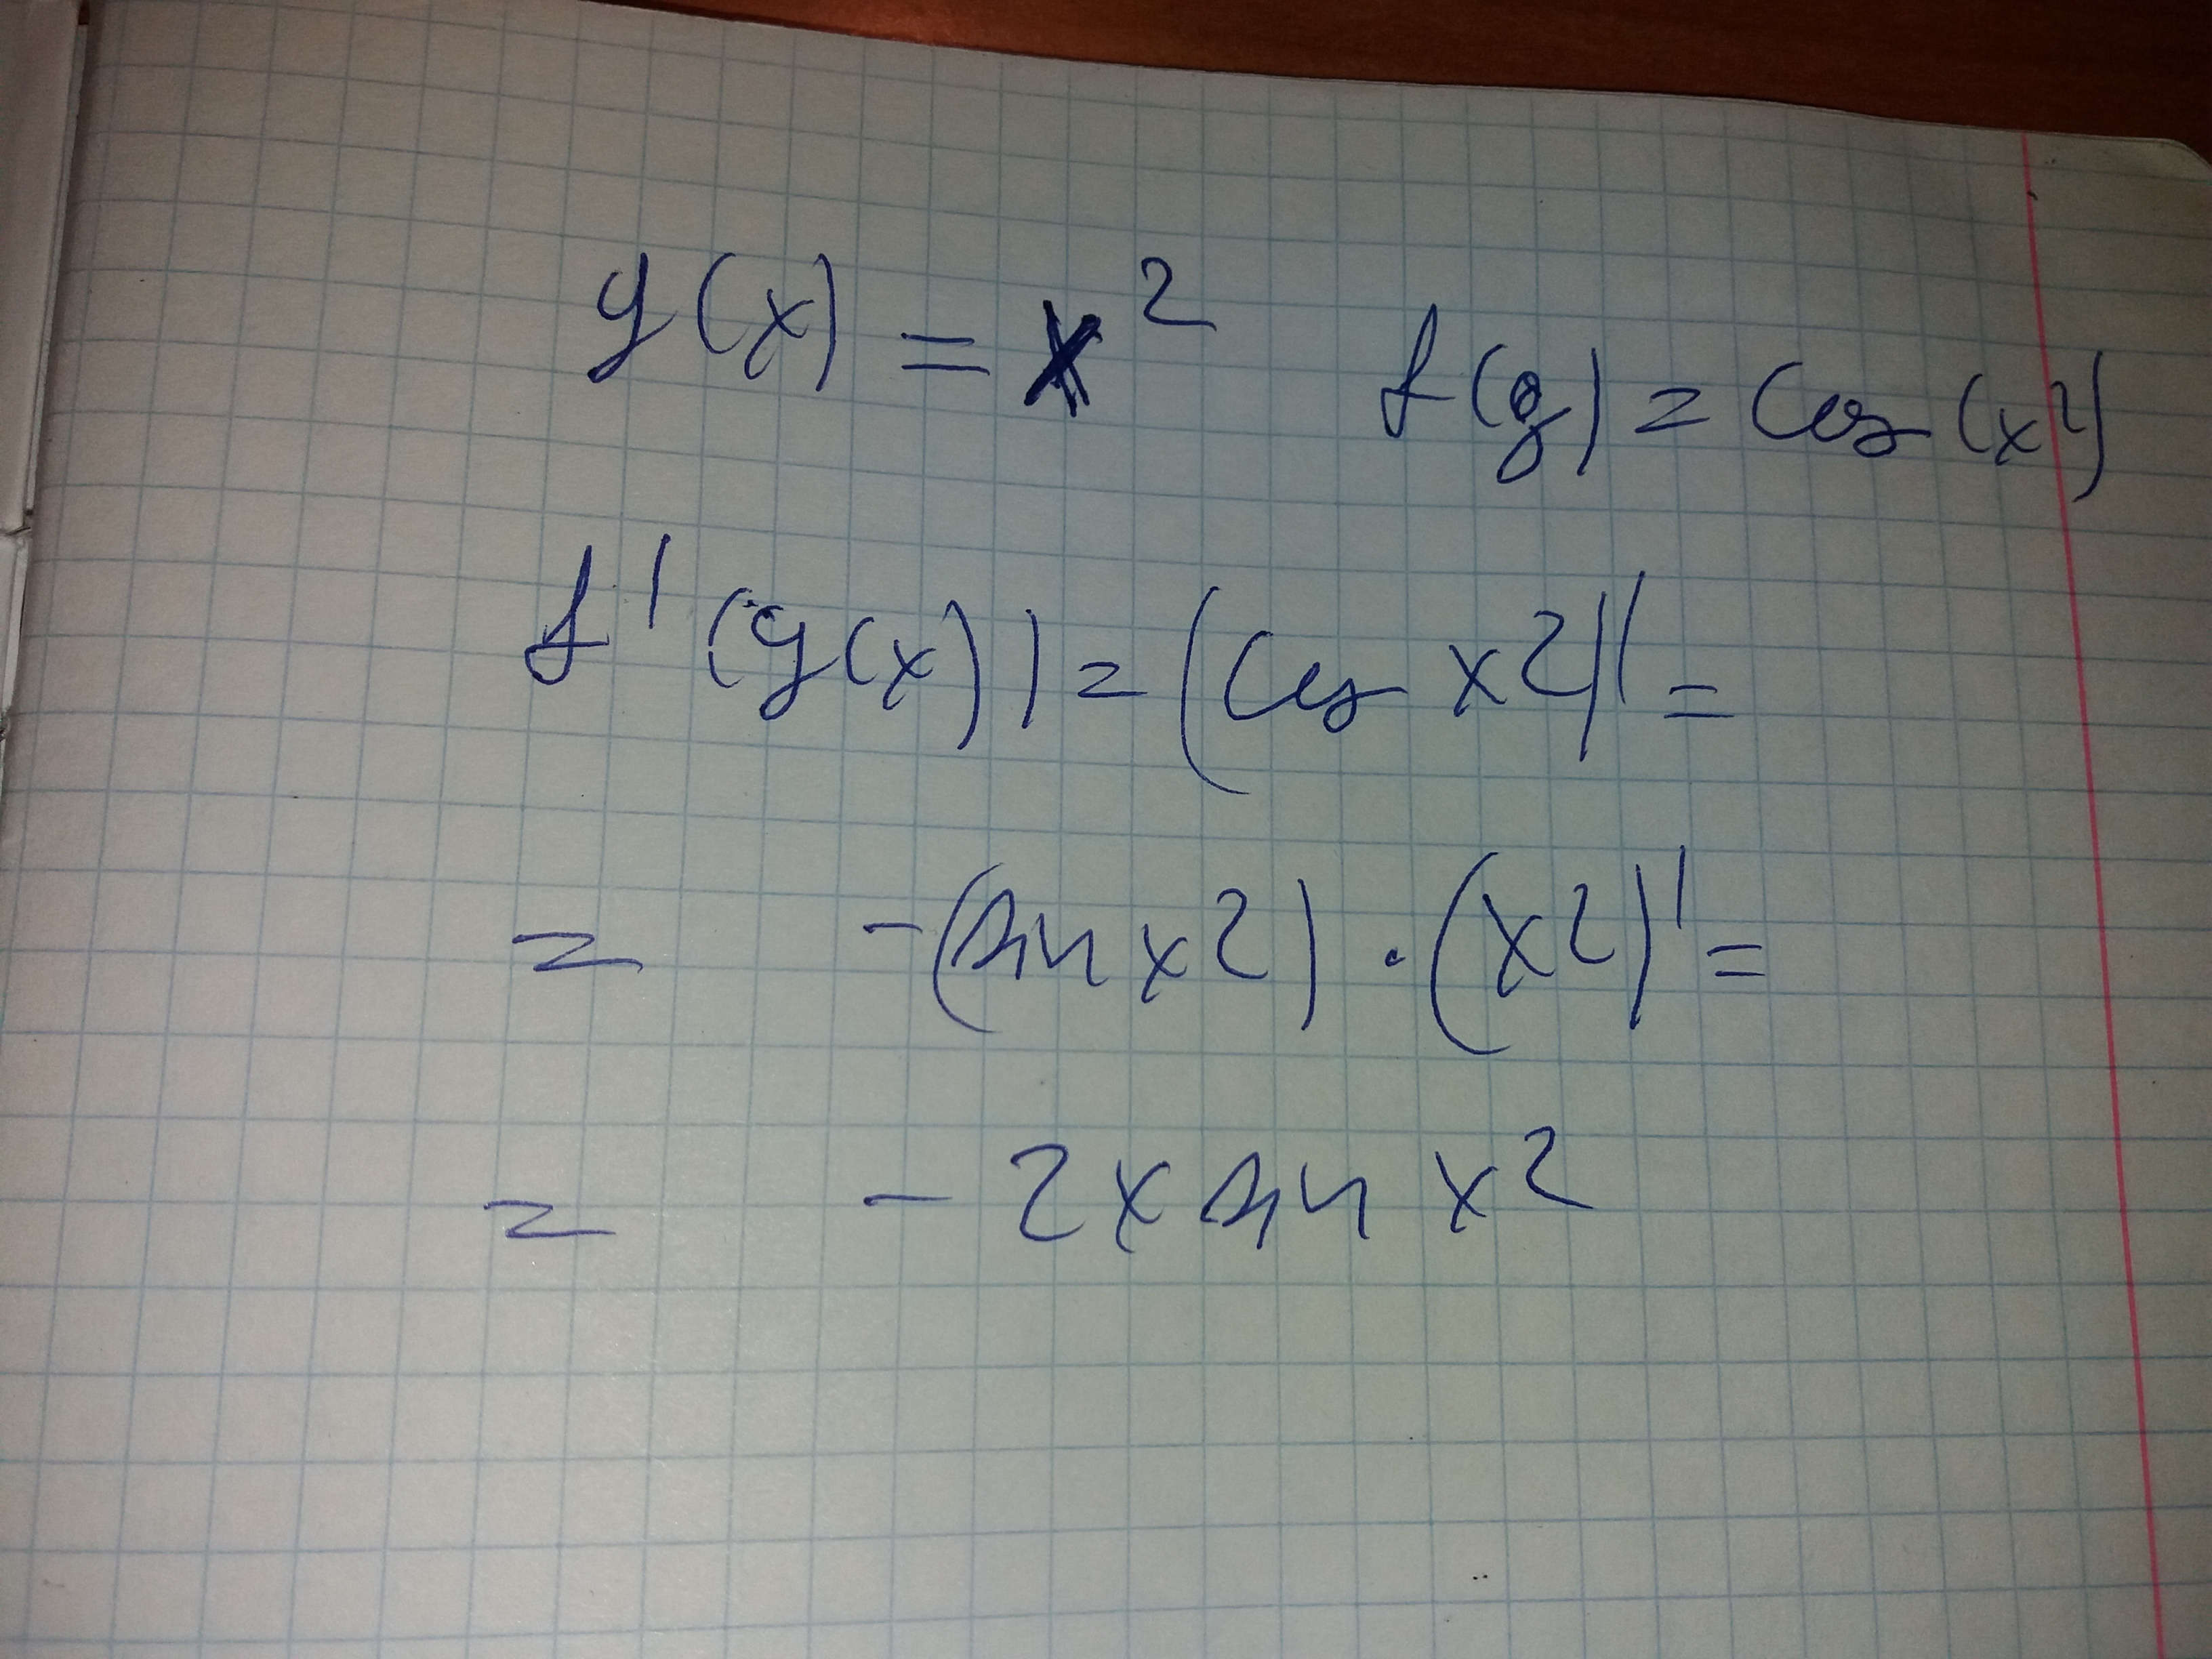 g(x) = x² f(g) = cos(x²)
f'(g(x)) = (cos x²)' =
= -(sin x²) · (x²)' =
= - 2x sin x²